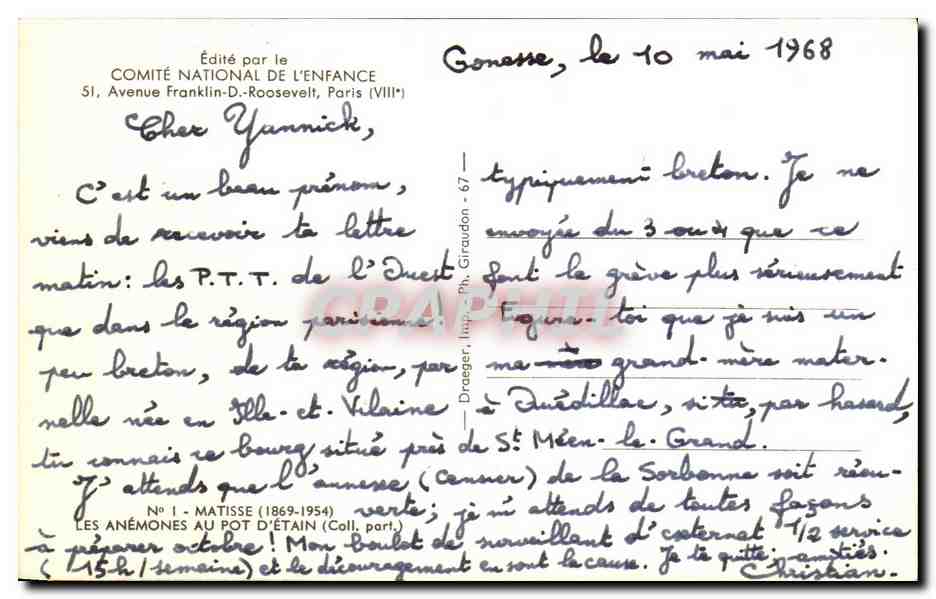 Édité par le
COMITÉ NATIONAL DE L'ENFANCE
51, Avenue Franklin-D.-Roosevelt, Paris (VIIIe)
Gonesse, le 10 mai 1968
Cher Yannick,
C'est un beau prénom, typiquement breton. Je ne
viens de recevoir ta lettre envoyée du 3 ou 4 que ce
matin : les P.T.T. de l'Ouest font la grève plus sérieusement
que dans la région parisienne. Figure-toi que je suis un
peu breton, de ta région, par ma mère grand-mère mater-
nelle née en Ille-et-Vilaine à Quédillac, si tu, par hasard,
tu connais ce bourg situé près de St Méen-le-Grand.
J'attends que l'annexe (Censier) de la Sorbonne soit réou-
verte ; je m'attends de toutes façons
à préparer octobre ! Mon boulot de surveillant d'externat 1/2 service
(15h/semaine) et le découragement en sont la cause. Je te quitte, amitiés.
Christian.
Draeger, Imp. - Ph. Giraudon - 67
No 1 - MATISSE (1869-1954)
LES ANÉMONES AU POT D'ÉTAIN (Coll. part.)